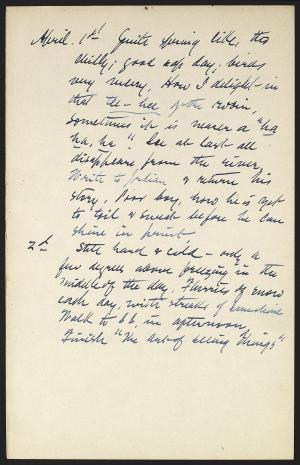 April. 1st Quite spring like, tho
chilly; good sap day; birds
very merry. How I delight in
that te-hee of the robin,
sometimes it is nearer a "ha
ha, ha." Ice at last all
disappears from the river,
Write to Julian & return his
story. Poor boy, how he is got
to toil & sweat before he can
shine in print.
2d Still hard & cold - only a
few degrees above freezing in the
middle of the day. Flurries of snow
each day, with streaks of sunshine
Walk to S.S. in afternoon,
Finish "The Art of Seeing Things"